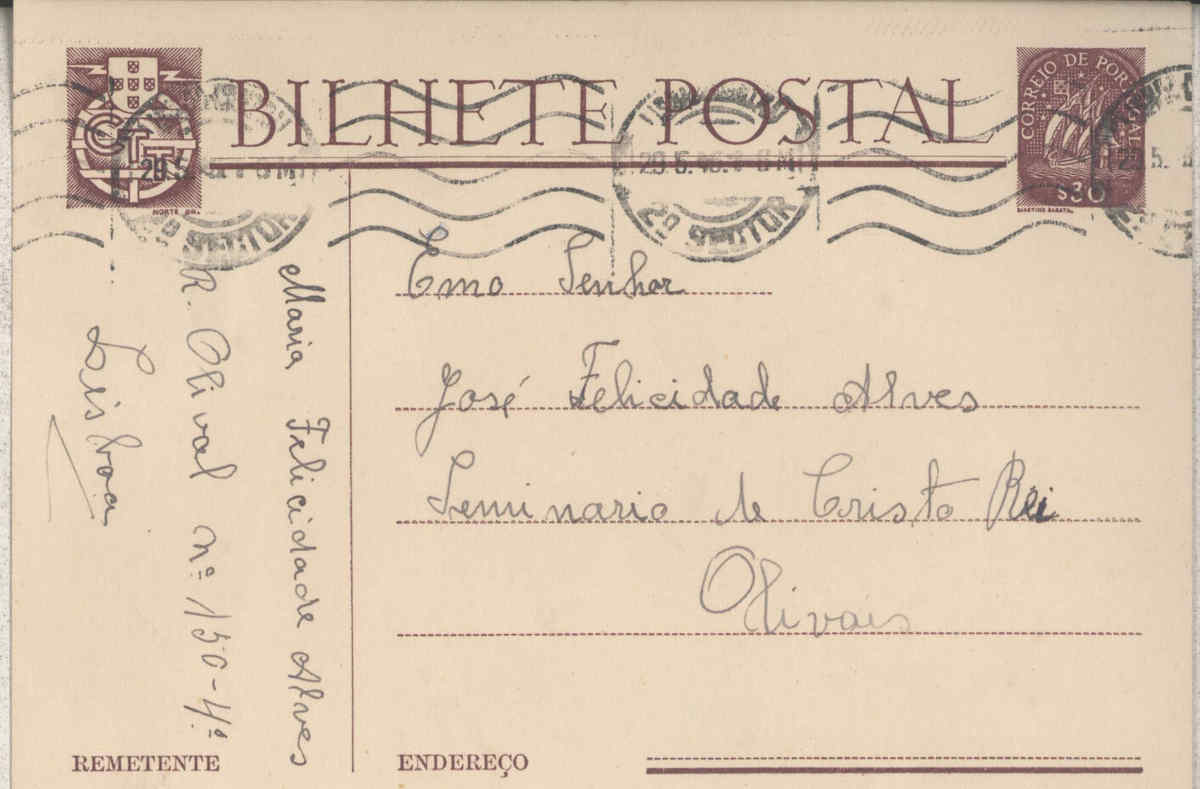 BILHETE POSTAL
CTT
CORREIO DE PORTUGAL
$30
2º SECTOR
29.5.46
2º SECTOR
Emo Senhor
José Felicidade Alves
Seminario de Cristo Rei
Olivais
Maria Felicidade Alves
R. Olival nº 150-4º
Lisboa
REMETENTE
ENDEREÇO